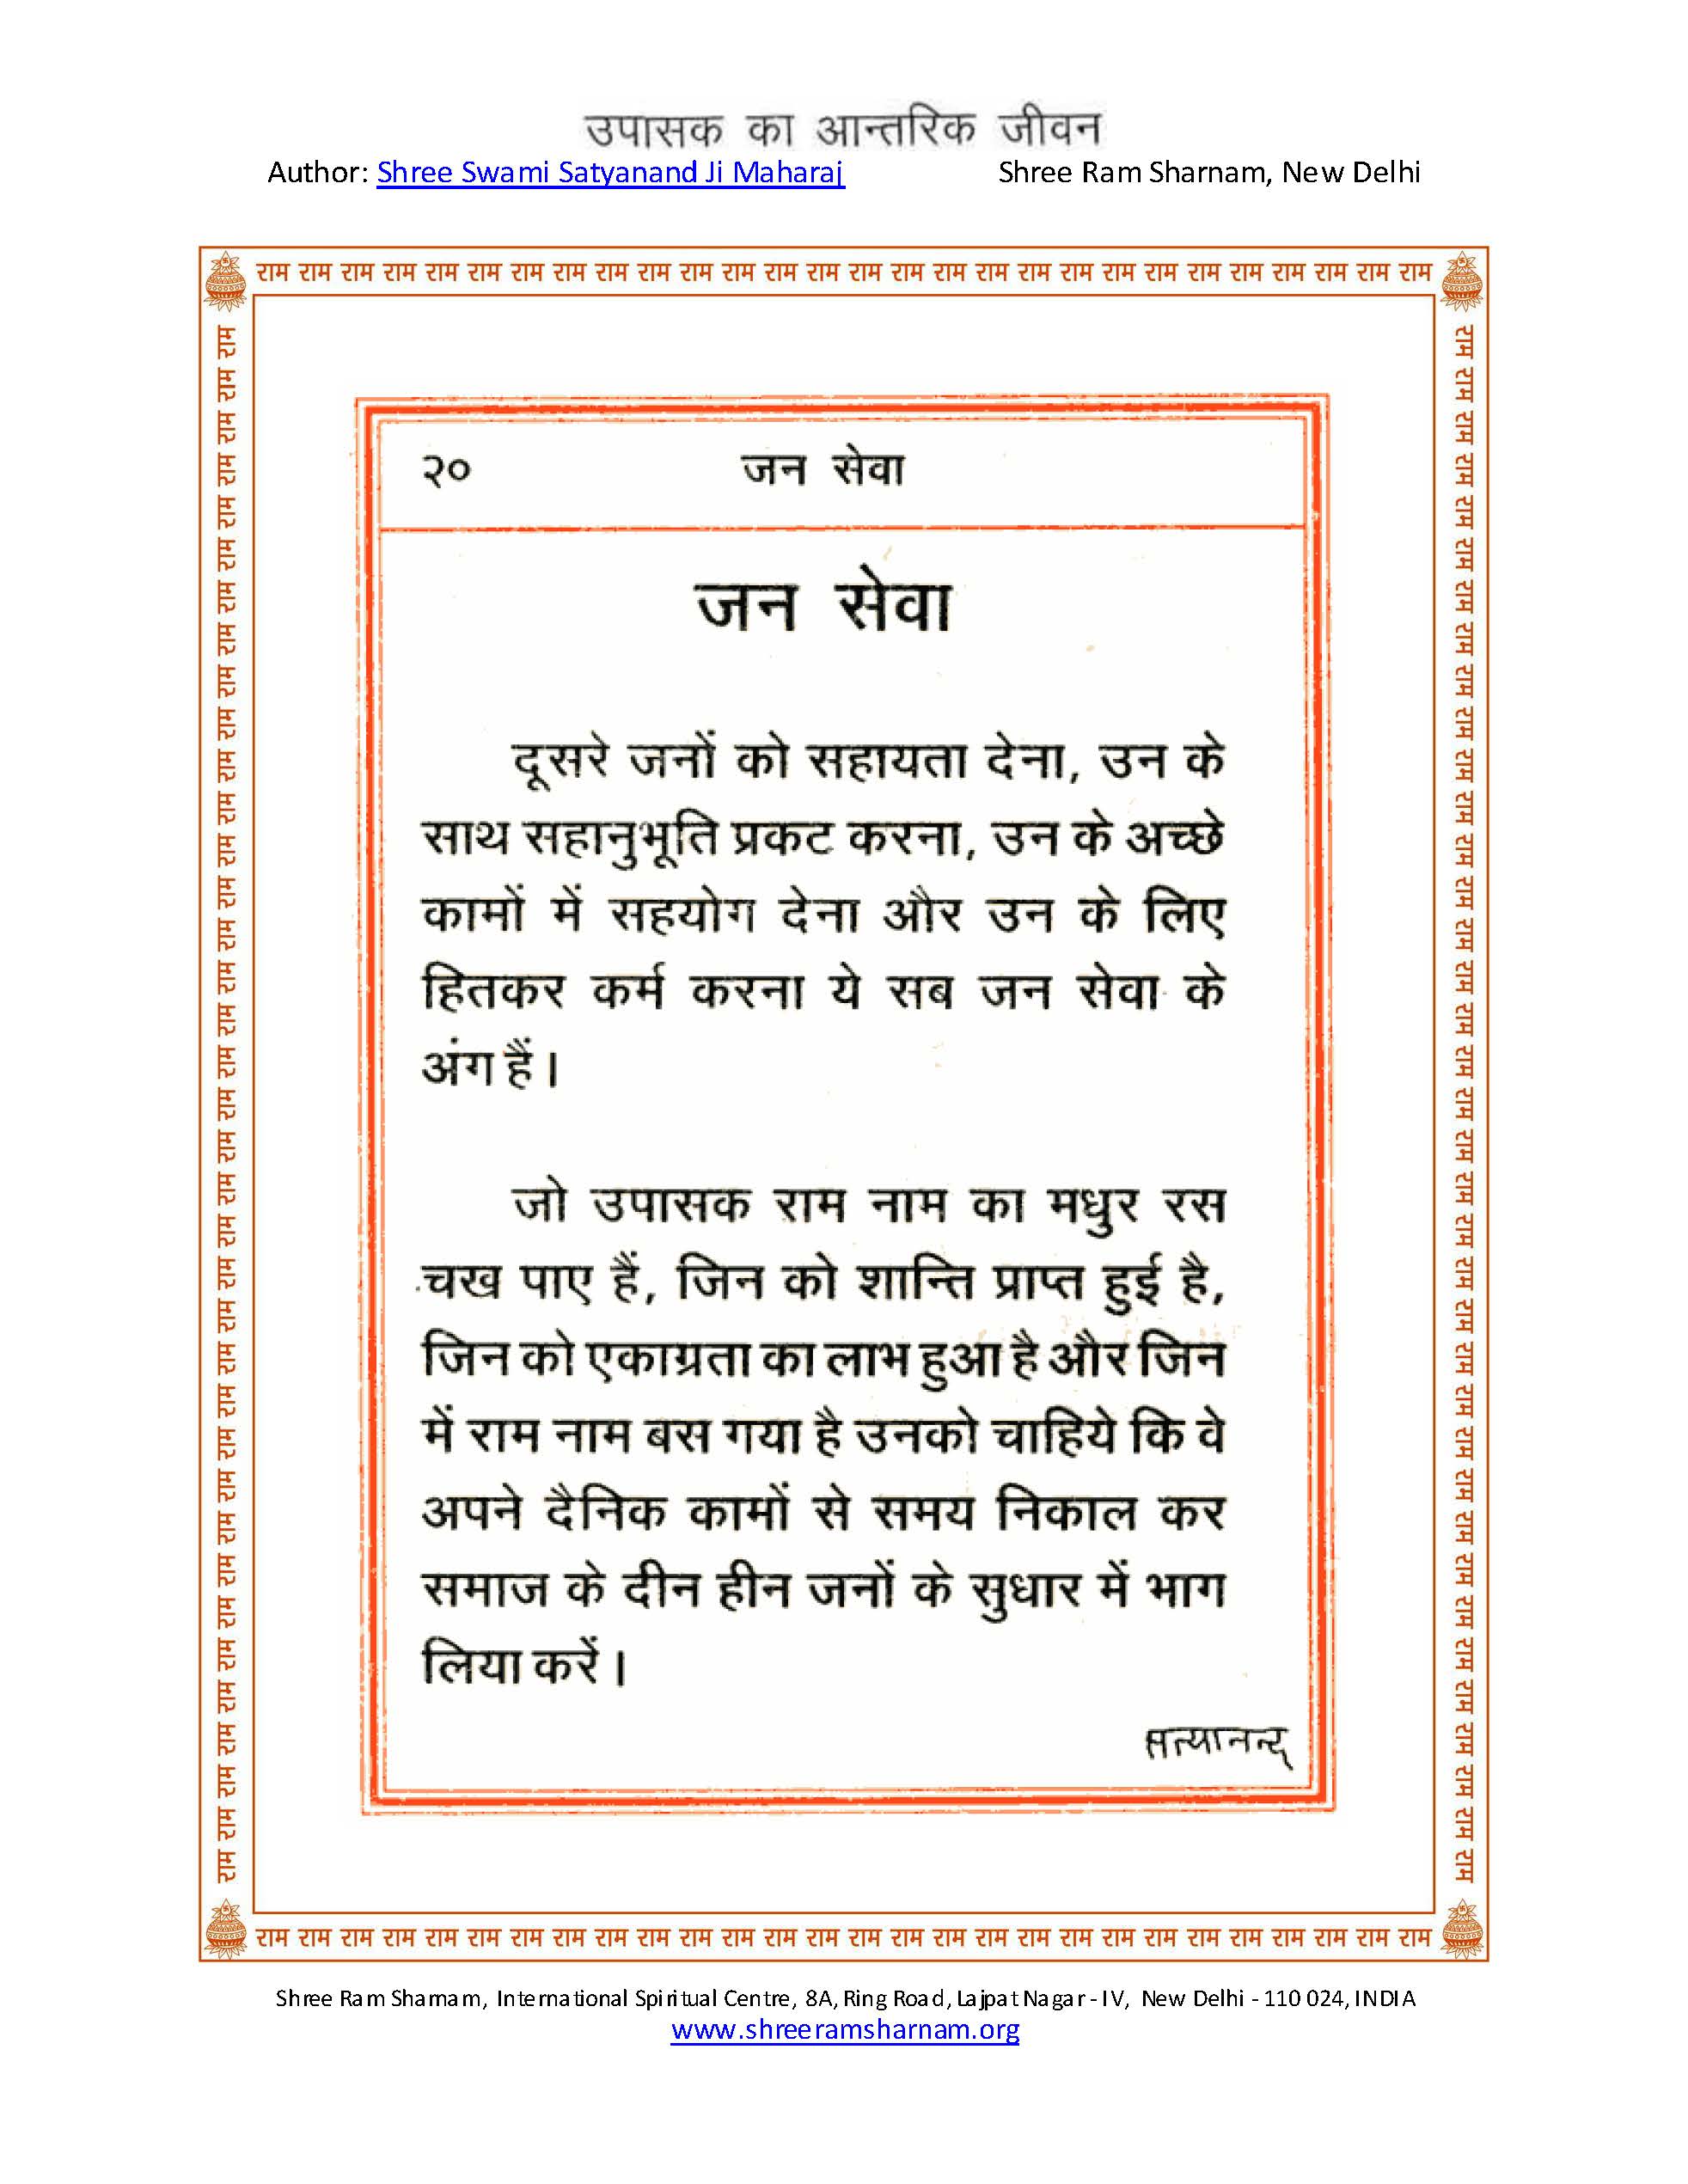 उपासक का आन्तरिक जीवन
Author: Shree Swami Satyanand Ji Maharaj Shree Ram Sharnam, New Delhi
राम राम राम राम राम राम राम राम राम राम राम राम राम राम राम राम राम राम राम राम राम राम राम राम राम राम राम राम
२० जन सेवा
जन सेवा
दूसरे जनों को सहायता देना, उन के
साथ सहानुभूति प्रकट करना, उन के अच्छे
कामों में सहयोग देना और उन के लिए
हितकर कर्म करना ये सब जन सेवा के
अंग हैं।
जो उपासक राम नाम का मधुर रस
चख पाए हैं, जिन को शान्ति प्राप्त हुई है,
जिन को एकाग्रता का लाभ हुआ है और जिन
में राम नाम बस गया है उनको चाहिये कि वे
अपने दैनिक कामों से समय निकाल कर
समाज के दीन हीन जनों के सुधार में भाग
लिया करें।
सत्यानन्द्
राम राम राम राम राम राम राम राम राम राम राम राम राम राम राम राम राम राम राम राम राम राम राम राम राम राम राम राम
राम राम राम राम राम राम राम राम राम राम राम राम राम राम राम राम राम राम राम राम राम राम राम राम राम राम राम राम राम राम राम राम राम राम राम राम राम
राम राम राम राम राम राम राम राम राम राम राम राम राम राम राम राम राम राम राम राम राम राम राम राम राम राम राम राम राम राम राम राम राम राम राम राम राम
Shree Ram Sharnam, International Spiritual Centre, 8A, Ring Road, Lajpat Nagar - IV, New Delhi - 110 024, INDIA
www.shreeramsharnam.org